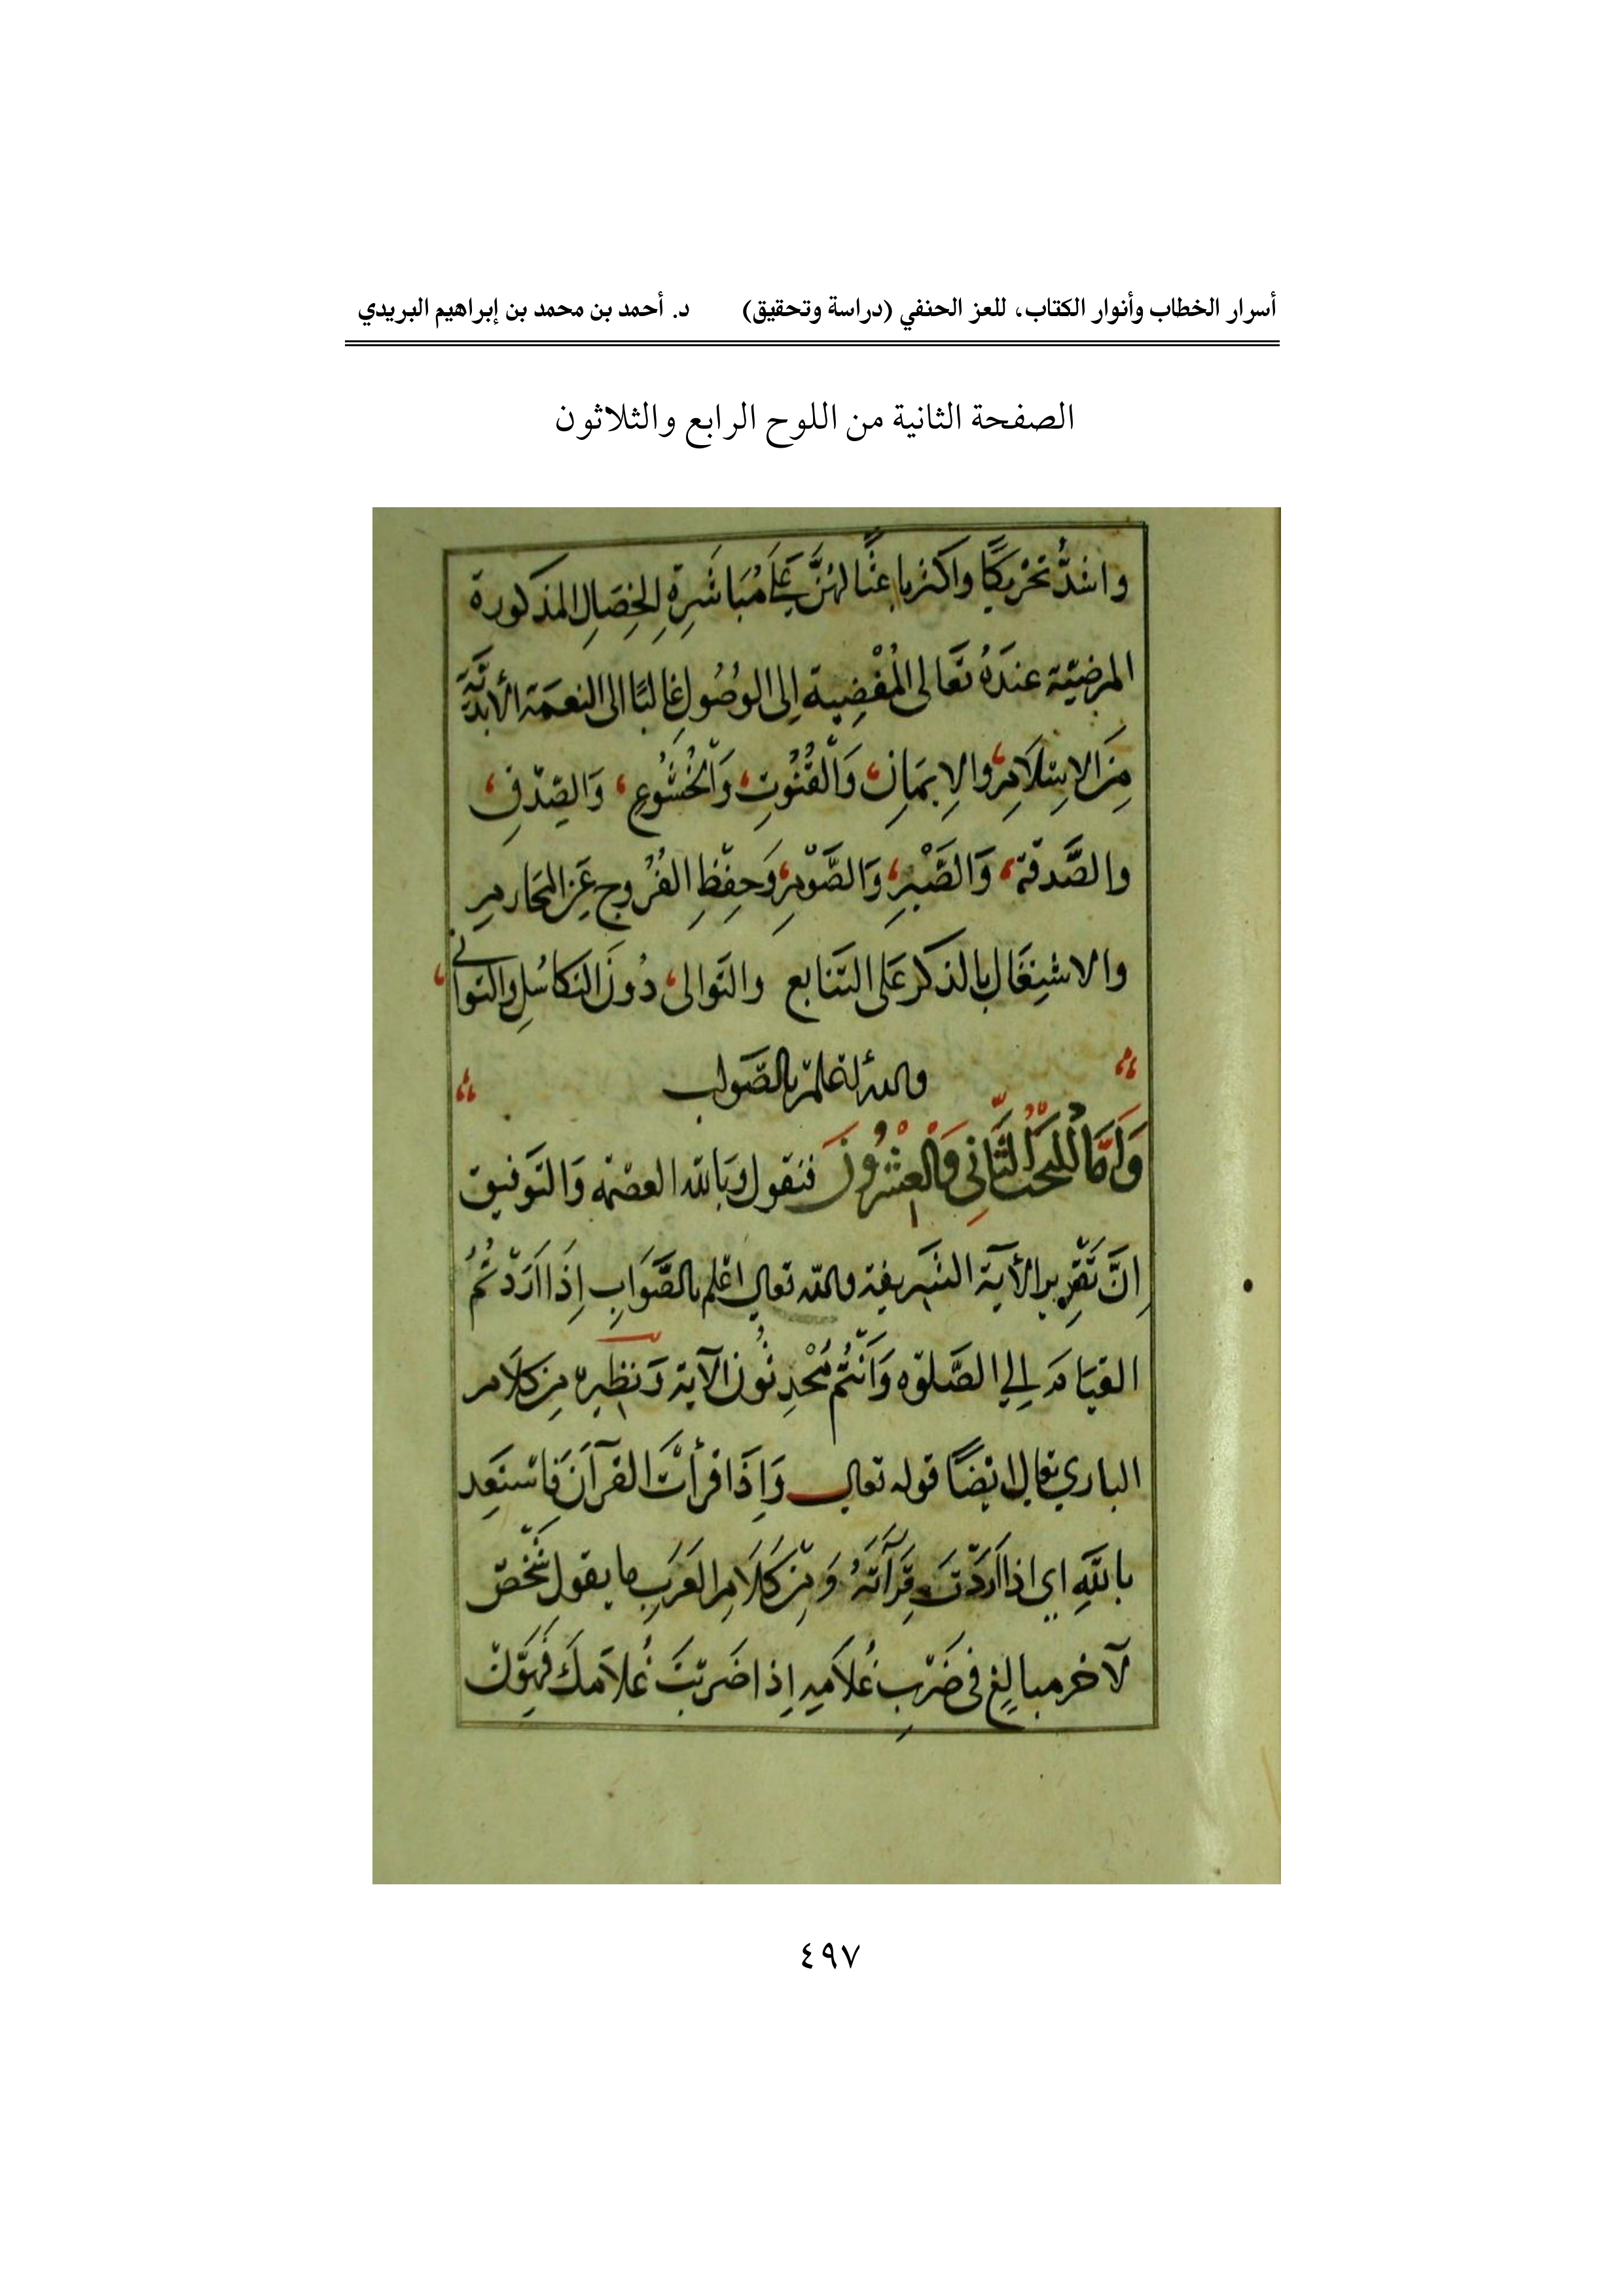 أسرار الخطاب وأنوار الكتاب، للعز الحنفي (دراسة وتحقيق) د. أحمد بن محمد بن إبراهيم البريدي
الصفحة الثانية من اللوح الرابع والثلاثون
واشدُّ تحريكًا واكثر باعثًا لهنَّ عَلَى مُبَاشَرةِ الخِصَالِ المذكورة
المرضيّة عندَهُ تعَالى المُفْضِية إلى الوُصُولِ غالبًا الى النعمة الأبديَّة
مِنَ الاِسْلَامِ، والاِيمَانِ، وَالْقُنُوتِ، وَالْخُشُوعِ، وَالصِّدْقِ،
والصَّدقة، وَالصَّبْرِ، وَالصَّوْمِ، وَحِفْظِ الفُرُوجِ عَنِ المَحَارِمِ
والاشتِغَال بالذكر عَلى التتابع والتوالى، دُونَ التكاسُلِ والتوانى،
والله اعلم بالصَّواب
وَأَمَّا المبحَثُ الثَّانِي وَالْعِشْرُونَ فنقول وَبالله العصْمة وَالتوْفيق
اِنَّ تَقْرِير الآية الشريفة والله تعالى اعْلم بالصَّوَابِ إِذَا اَرَدْتُمُ
القيَام إلي الصَّلوٰه وَاَنْتُم مُحْدِثُون الآية وَنظيره مِن كلَام
الباري تعالى ايْضًا قوله تعالى وَإِذَا قرأتَ القرآنَ فَاسْتَعِذ
بِاللهِ اي اذا اَرَدْتَ قِرَآتَهُ وَمِنْ كَلَامِ العَرَبِ ما يقول شَخْصٌ
لآخر مبالِغٍ فى ضَرْبِ غُلَامِهِ اِذا ضَرَبْتَ غُلامكَ فَهَوِّنْ
٤٩٧